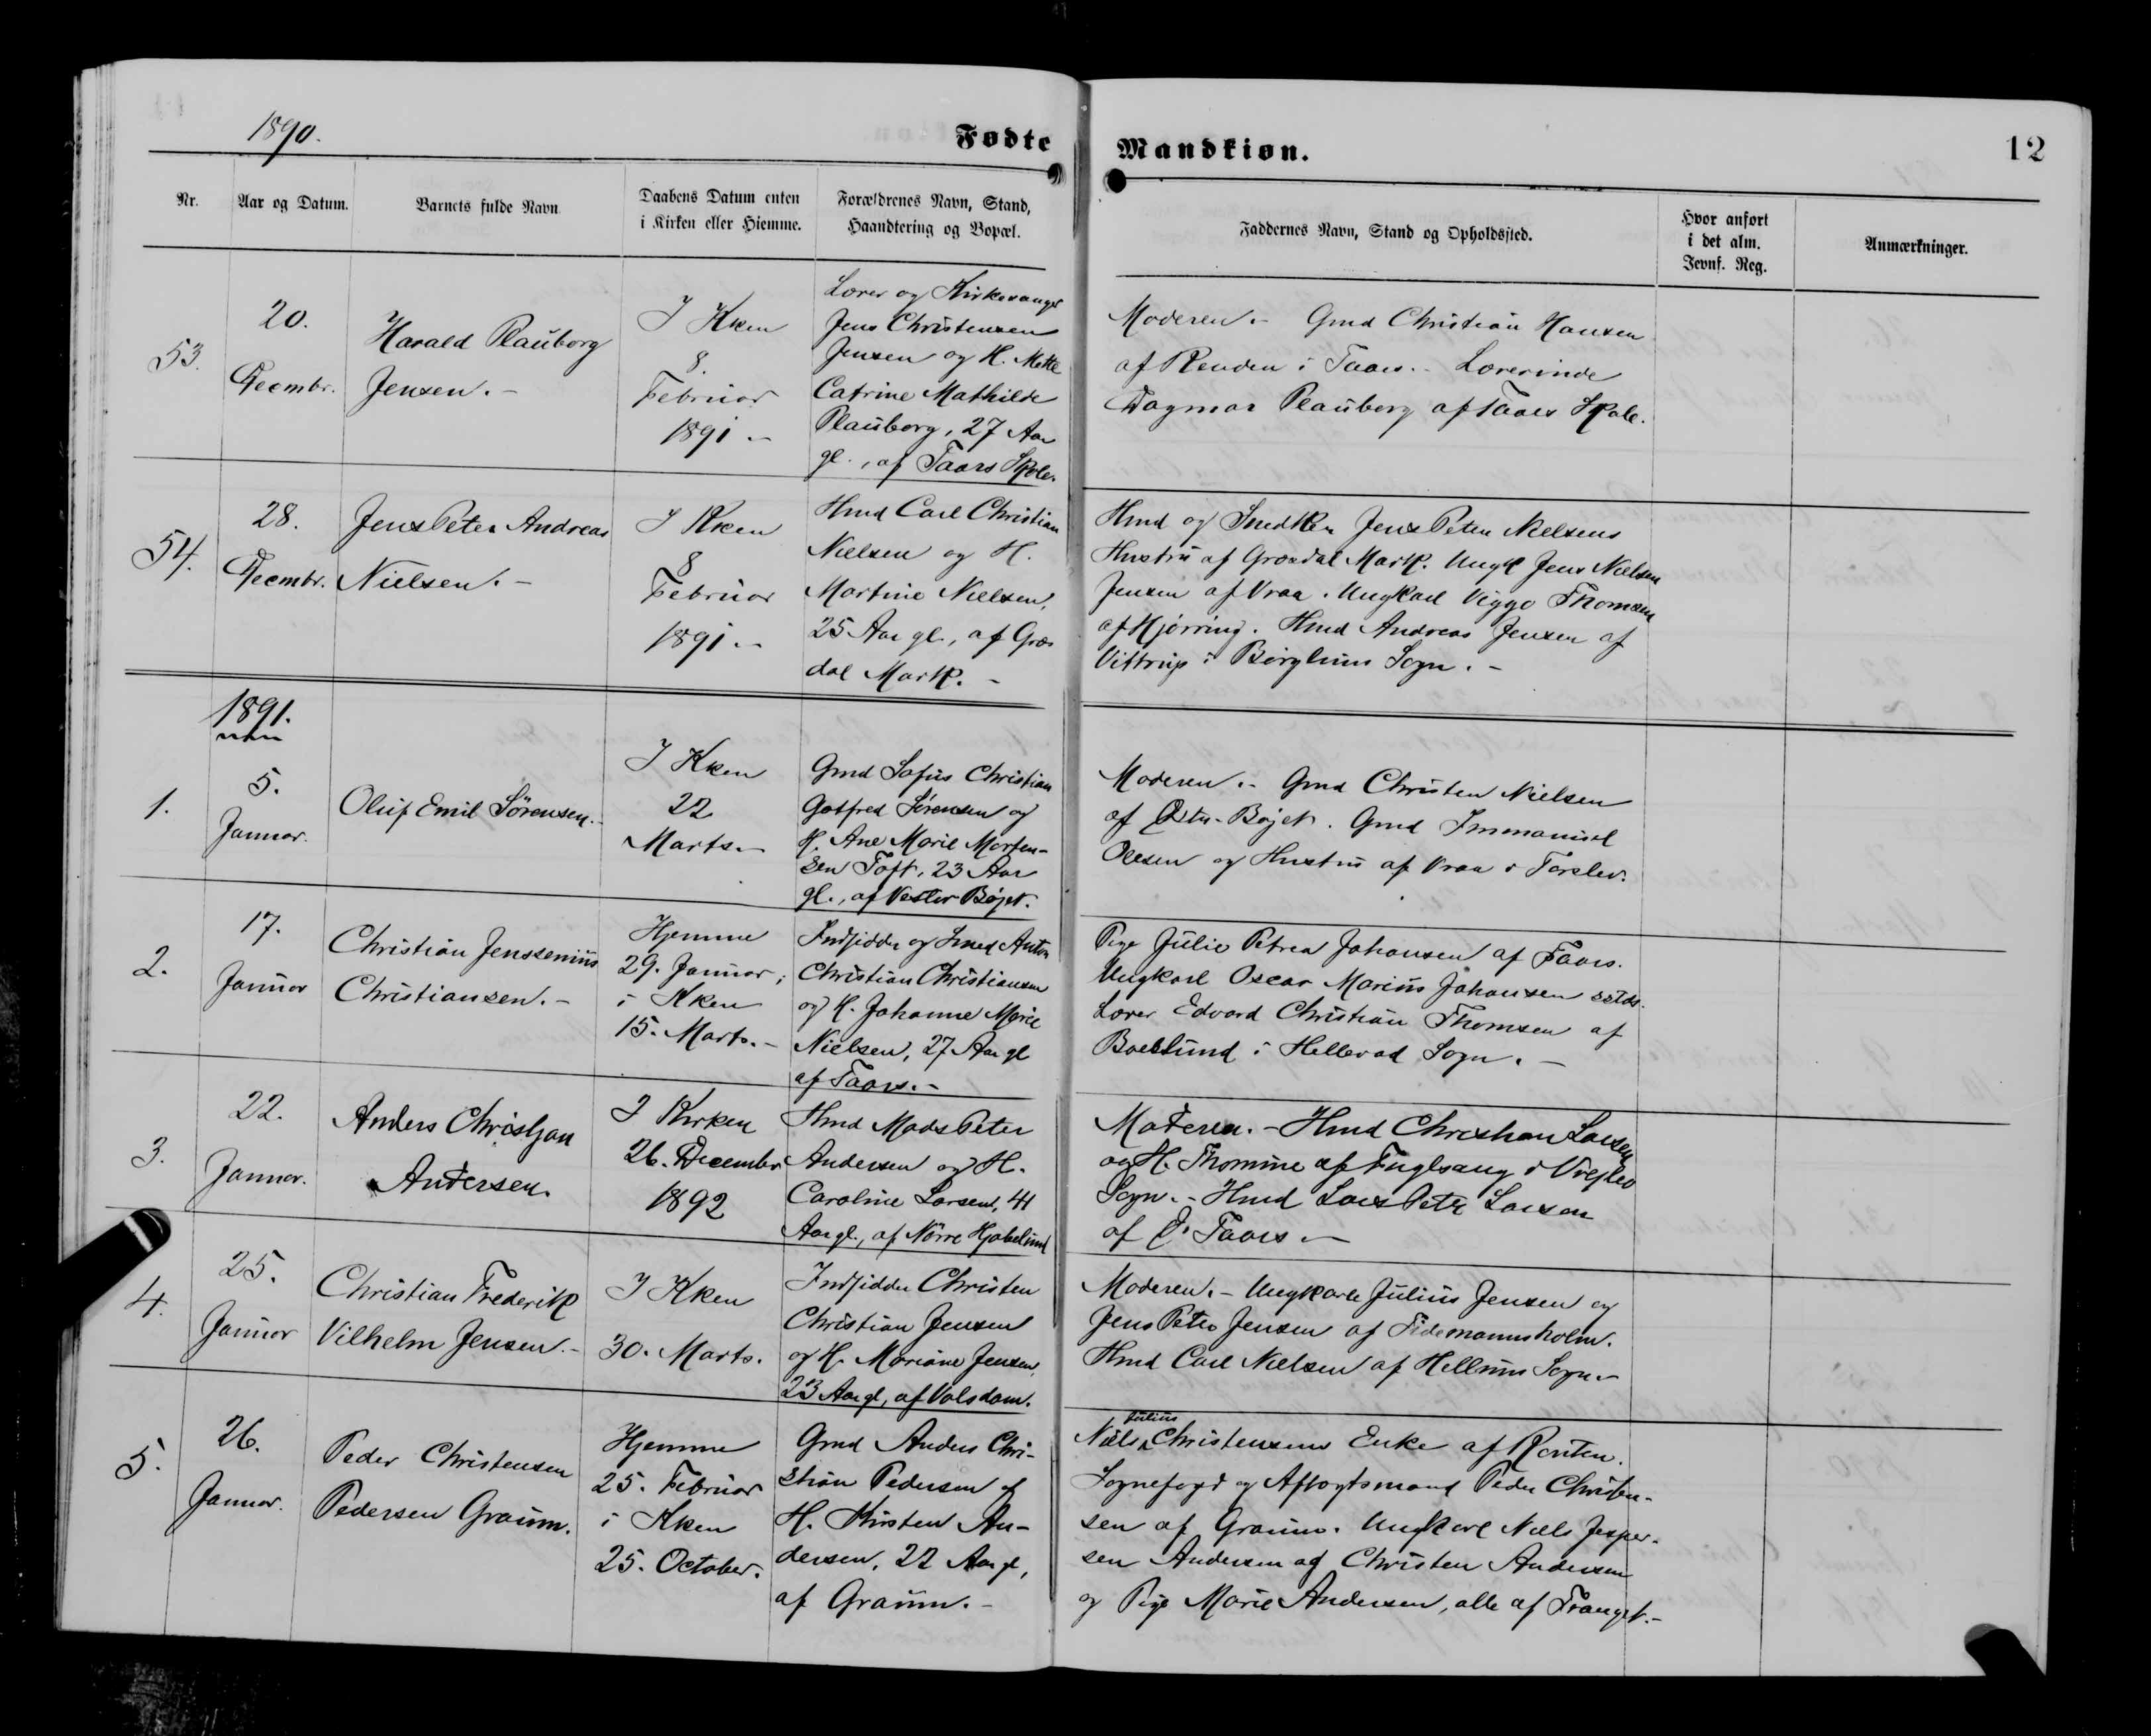 1890.
Fødte
Mandkiøn.
12
Nr.
Aar og Datum.
Barnets fulde Navn
Daabens Datum enten
i Kirken eller Hiemme.
Forældrenes Navn, Stand,
Haandtering og Bopæl.
Faddernes Navn, Stand og Opholdssted.
Hvor anført
i det alm.
Jevnf. Reg.
Anmærkninger.
53.
20.
Decmbr.
Harald Plauborg
Jensen.-
I Kken
8.
Februar
1891.-
Lærer og Kirkesanger
Jens Christensen
Jensen og H. Mette
Catrine Mathilde
Plauborg, 27 Aar
gl., af Taars Skole.
Moderen.- Gmd Christian Hansen
af Renden i Taars.- Lærerinde
Dagmar Plauborg af Taars Skole.
54.
28.
Decmbr.
Jens Peter Andreas
Nielsen.-
I Kken
8
Februar
1891.-
Hmd Carl Christian
Nielsen og H.
Martine Nielsen,
25 Aar gl., af Græs
dal Mark.-
Hmd og Smed Jens Peter Nielsens
Hustru af Græsdal Mark. Ungk Jens Nielsen
Jensen af Vraa. Ungkarl Viggo Thomsen
af Hjørring. Hmd Andreas Jensen af
Vittrup i Børglum Sogn.-
1891.
1.
5.
Januar.
Oluf Emil Sörensen.-
I Kken
22
Marts.-
Gmd Sofus Christian
Gotfred Sörensen og
H. Ane Marie Morten-
sen Toft, 23 Aar
gl., af Vester Böjet.
Moderen.- Gmd Christen Nielsen
af Øster-Böjet. Gmd Immanuel
Olesen og Hustru af Vraa i Torslev.
2.
17.
Januar
Christian Jenssenius
Christiansen.-
Hjemme
29. Januar;
i Kken
15. Marts.-
Indsidder og Smed Anton
Christian Christiansen
og H. Johanne Marie
Nielsen, 27 Aar gl
af Taars.-
Pige Julie Petrea Johansen af Taars.
Ungkarl Oscar Marius Johansen sstds.
Lærer Edvard Christian Thomsen af
Boelslund i Hellevad Sogn.-
3.
22.
Januar.
Anders Christjan
Andersen.
I Kirken
26. December
1892
Hmd Mads Peter
Andersen og H.
Caroline Larsen, 41
Aar gl., af Nörre Hjabelund
Moderen.- Hmd Christian Larsen
og H. Thomine af Fuglsang i Vrejlev
Sogn.- Hmd Lars Peter Larsen
af Ø. Taars.-
4.
25.
Januar
Christian Frederik
Vilhelm Jensen.-
I Kken
30. Marts.
Indsidder Christen
Christian Jensen
og H. Mariane Jensen,
23 Aar gl, af Volsdam.
Moderen.- Ungkarle Julius Jensen og
Jens Peter Jensen af Tidemannsholm.
Hmd Carl Nielsen af Hellum Sogn.-
5.
26.
Januar.
Peder Christensen
Pedersen Graum.
Hjemme
25. Februar
i Kken
25. October.
Gmd Anders Chri-
stian Pedersen og
H. Kirsten An-
dersen, 22 Aar gl,
af Graum.-
Julius
Niels Christensens Enke af Rönten.
Sognefoged og Aftægtsmand Peder Christen-
sen af Graum. Ungkarl Niels Jesper-
sen Andersen og Christen Andersen
og Pige Marie Andersen, alle af Tranget.-